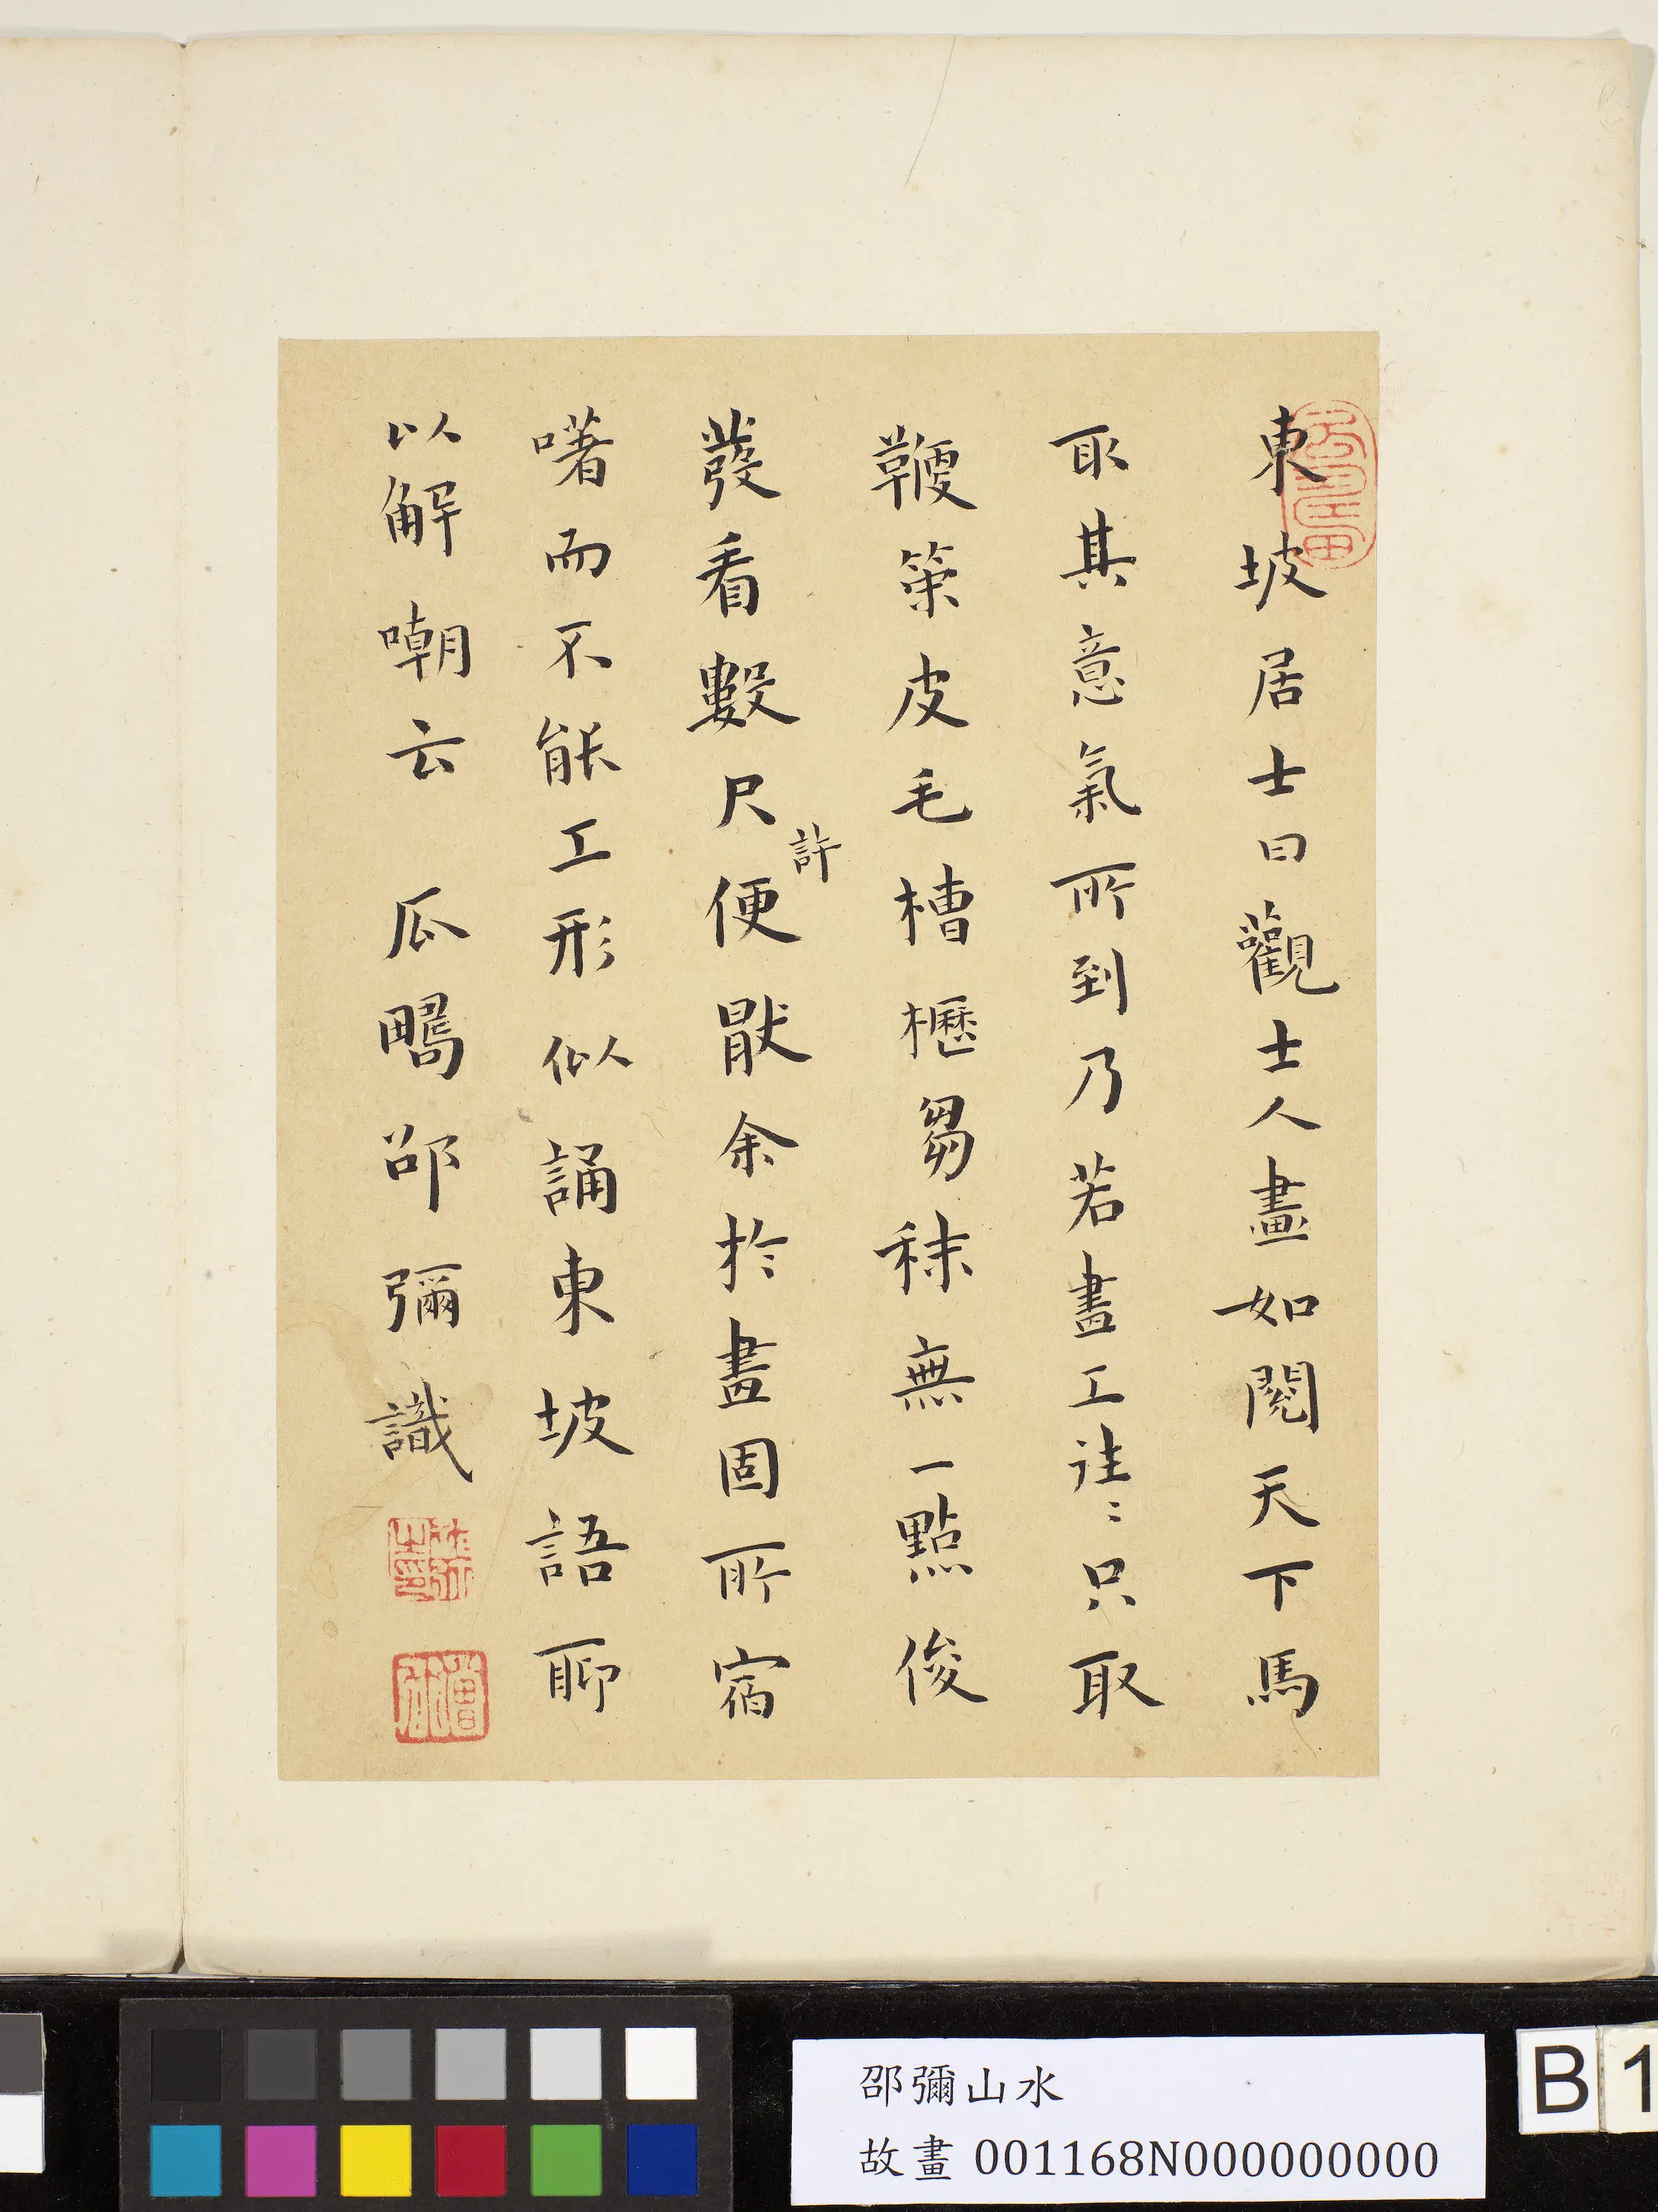 東坡居士曰觀士人畫如閱天下馬
取其意氣所到乃若畫工往〻只取
鞭策皮毛槽櫪芻秣無一點俊
發看數尺許便厭余於畫固所宿
嗜而不能工形似誦東坡語聊
以解嘲云 瓜疇邵彌識
邵彌山水
故畫 001168N000000000
B 1